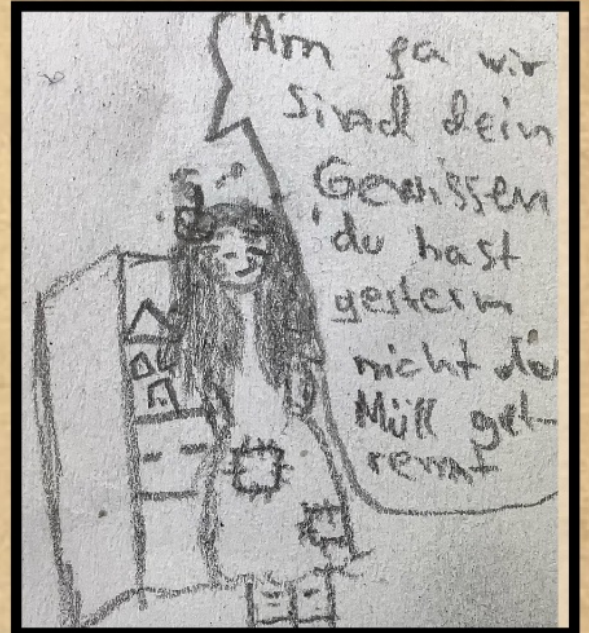 Äm ja wir
sind dein
Gewissen
du hast
gestern
nicht de
Müll get-
rennt